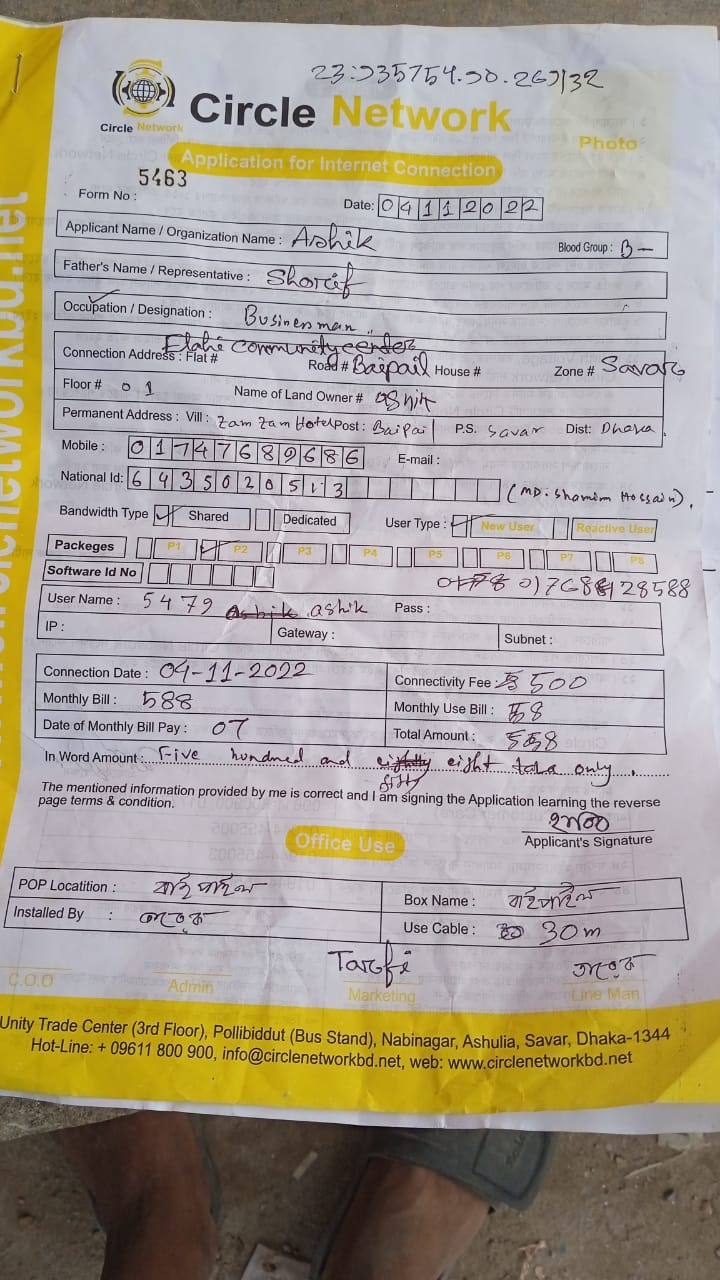 23:935754.90.267/32
Circle Network
Circle Network
Photo
Application for Internet Connection
5463
Form No :
Date: 04112022
Applicant Name / Organization Name : Ashik
Blood Group : B-
Father's Name / Representative : Shorif
Occupation / Designation : Businenman
Elahi community center
Connection Address : Flat # Road # Baipail House # Zone # Savar
Floor # 01 Name of Land Owner # ashik
Permanent Address : Vill : Zam Zam Hotel Post : Baipail P.S. Savar Dist: Dhaka
Mobile : 01747689686 E-mail :
National Id: 6435020513 (MD. Shamim Hossain).
Bandwidth Type Shared Dedicated User Type : New User Reactive User
Packeges P1 P2 P3 P4 P5 P6 P7 P8
Software Id No
User Name : 5479 ashik Pass :
IP : Gateway : Subnet :
Connection Date : 04-11-2022 Connectivity Fee : 500
Monthly Bill : 588 Monthly Use Bill : 58
Date of Monthly Bill Pay : 07 Total Amount : 558
In Word Amount : Five hundred and fifty eight taka only
The mentioned information provided by me is correct and I am signing the Application learning the reverse
page terms & condition.
Applicant's Signature
Office Use
POP Locatition : বাইপাইল Box Name : বাইপাইল
Installed By : তারেক Use Cable : 30m
C.O.O Admin Marketing Line Man
তারেক
Unity Trade Center (3rd Floor), Pollibiddut (Bus Stand), Nabinagar, Ashulia, Savar, Dhaka-1344
Hot-Line: + 09611 800 900, info@circlenetworkbd.net, web: www.circlenetworkbd.net